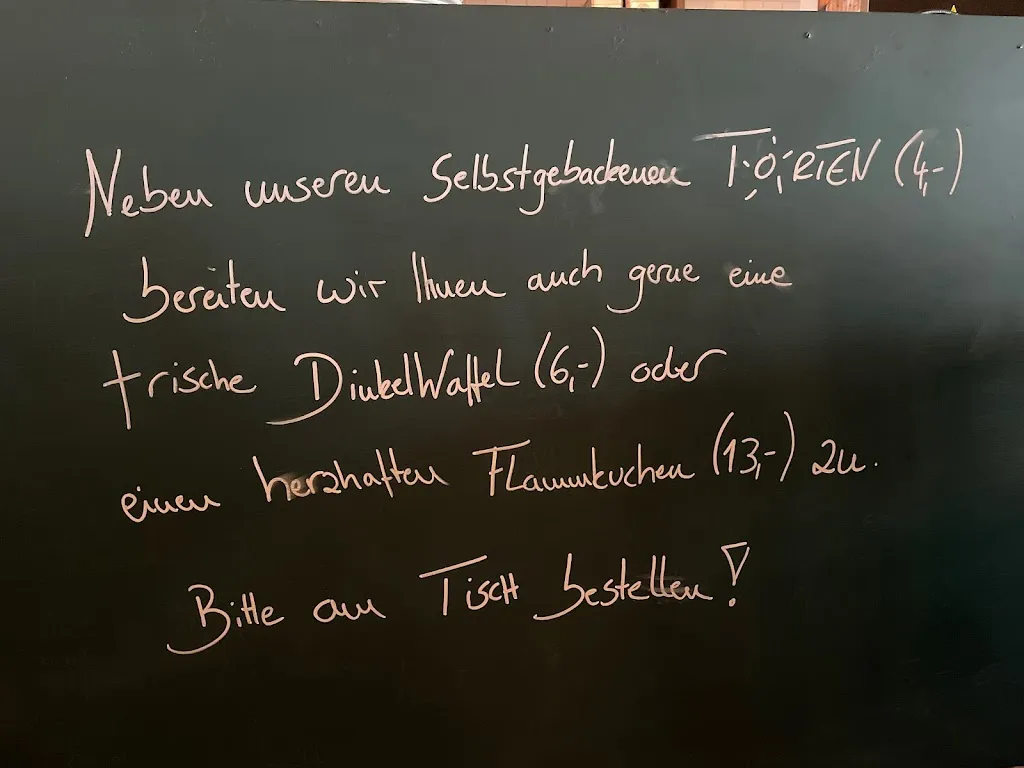 Neben unseren Selbstgebackenen TORTEN (4,-)
bereiten wir Ihnen auch gerne eine
frische DinkelWaffel (6,-) oder
einen herzhaften FLammkuchen (13,-) zu.
Bitte am Tisch bestellen!